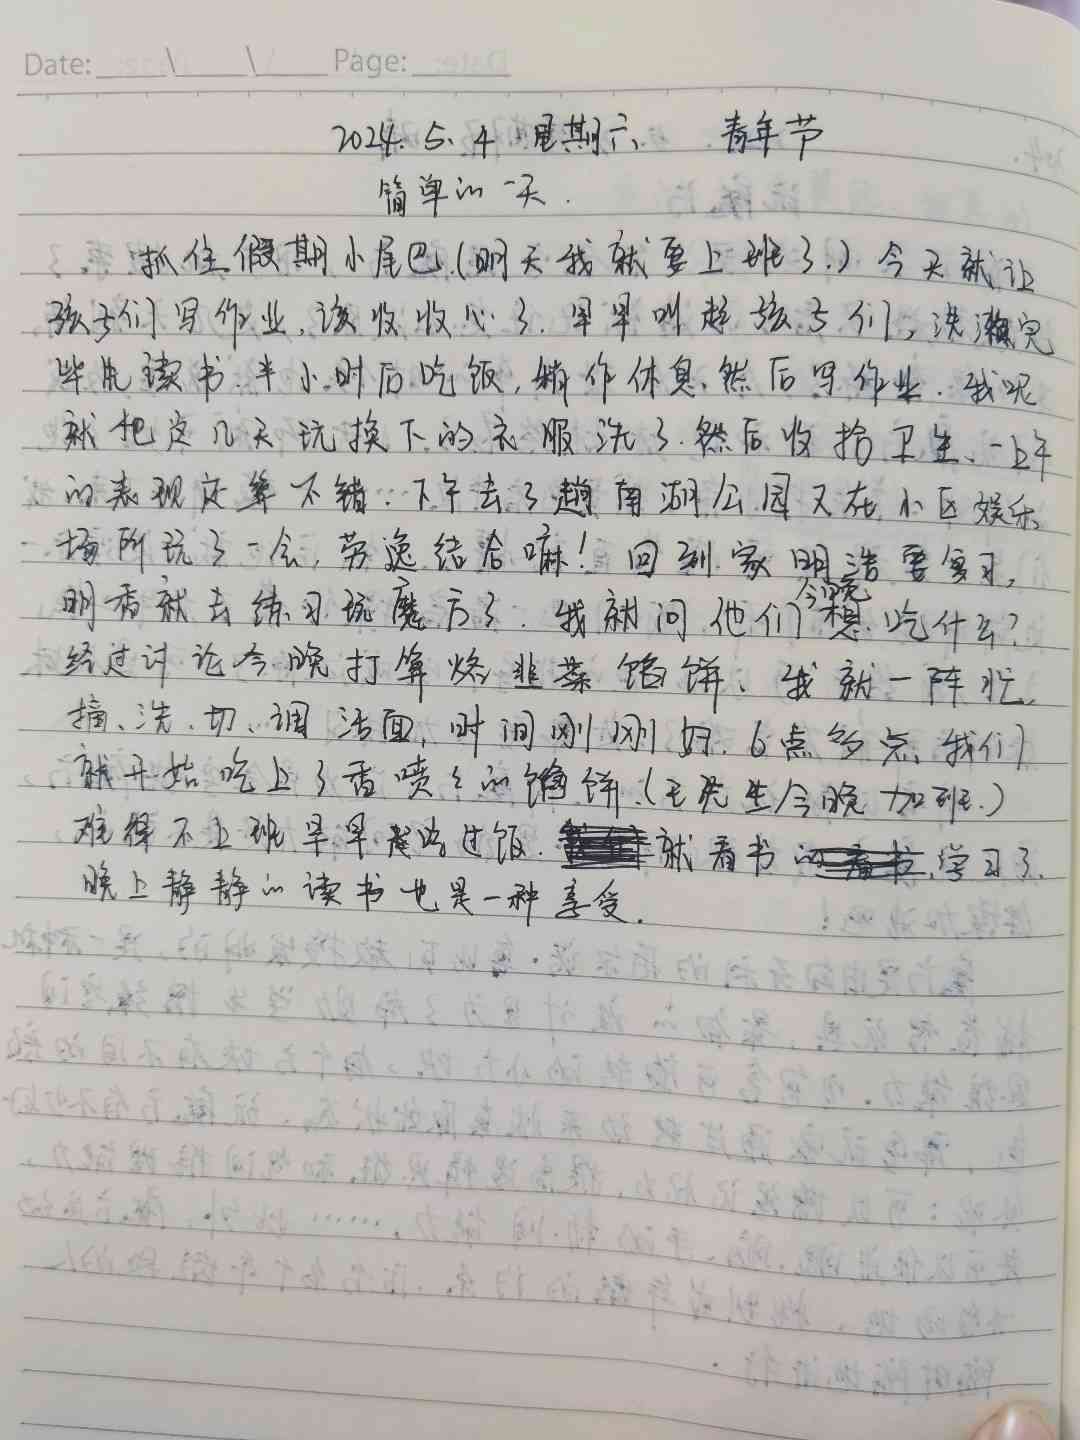 Date: \ \ Page:
2024.5.4 星期六 青年节
简单的一天.
抓住假期小尾巴(明天我就要上班了.)今天就让
孩子们写作业,该收收心了.早早叫起孩子们,洗漱完
毕先读书.半小时后吃饭,稍作休息,然后写作业.我呢
就把这几天玩换下的衣服洗了.然后收拾卫生、一上午
的表现还算不错.下午去了趟南湖公园又在小区娱乐
场所玩了一会,劳逸结合嘛!回到家明浩要复习,
明香就去练习玩魔方了.我就问他们今晚想吃什么?
经过讨论今晚打算烙韭菜馅饼、我就一阵忙,
摘、洗、切、调活面,时间刚刚好.6点多点、我们
就开始吃上了香喷喷的馅饼.(王先生今晚加班.)
难得不上班早早吃过饭.就看书学习了.
晚上静静的读书也是一种享受.